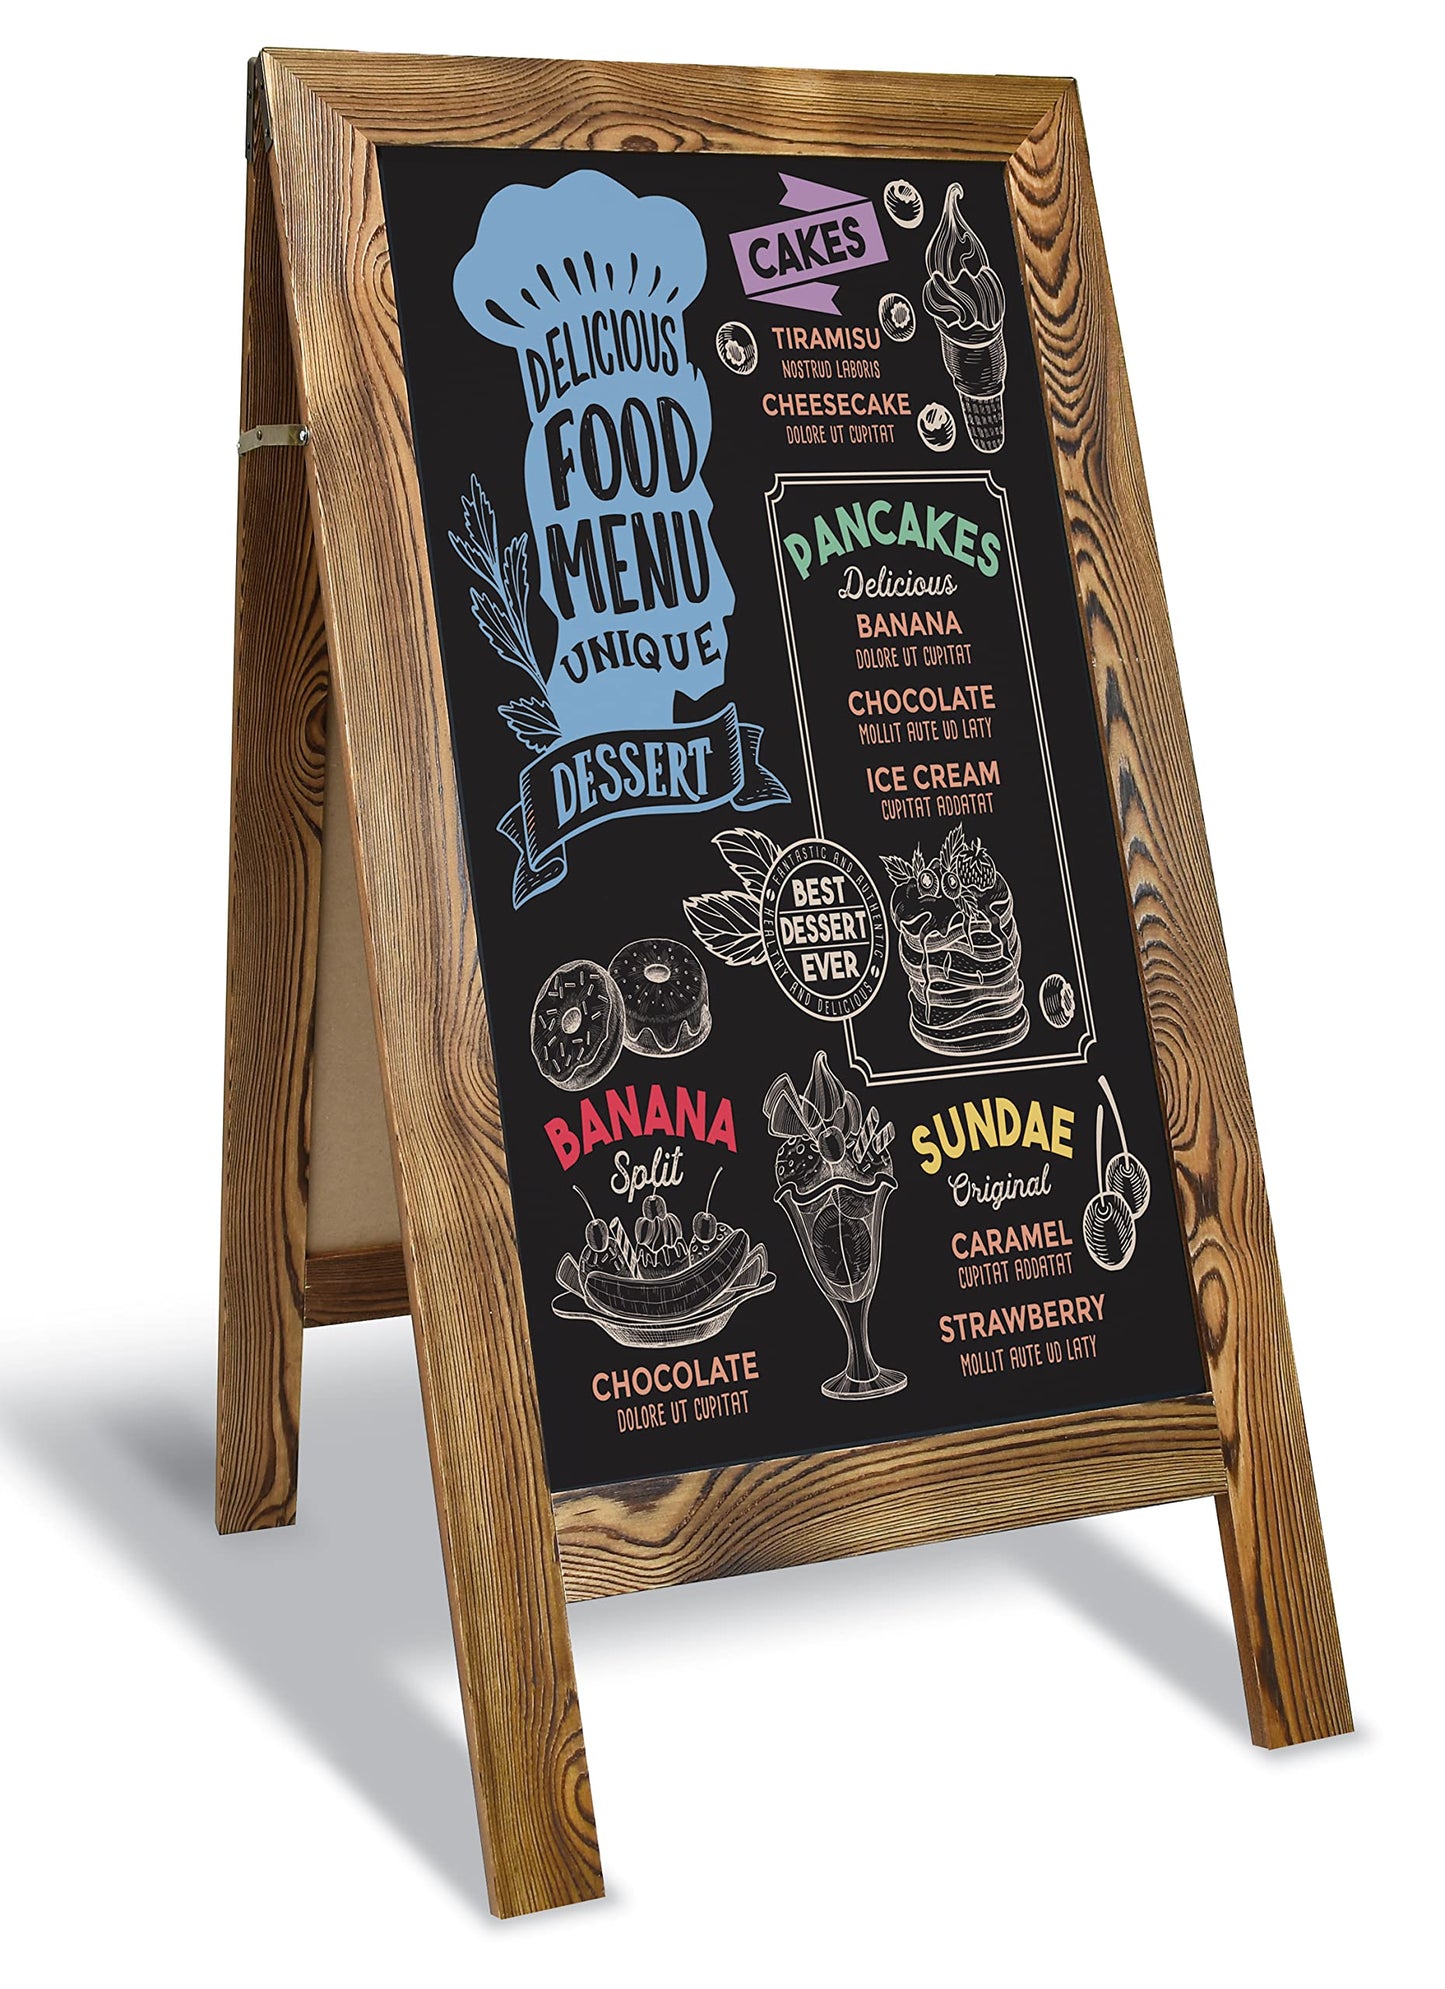 DELICIOUS
FOOD
MENU
UNIQUE
DESSERT
CAKES
TIRAMISU
NOSTRUD LABORIS
CHEESECAKE
DOLORE UT CUPITAT
PANCAKES
Delicious
BANANA
DOLORE UT CUPITAT
CHOCOLATE
MOLLIT AUTE UD LATY
ICE CREAM
CUPITAT ADDATAT
FANTASTIC AND AUTHENTIC
BEST
DESSERT
EVER
HEALTHY AND DELICIOUS
BANANA
Split
CHOCOLATE
DOLORE UT CUPITAT
SUNDAE
Original
CARAMEL
CUPITAT ADDATAT
STRAWBERRY
MOLLIT AUTE UD LATY